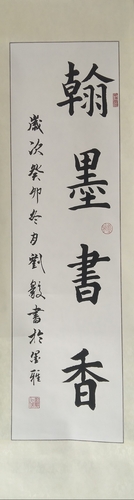 翰墨書香
歲次癸卯冬月劉毅書於墨雅